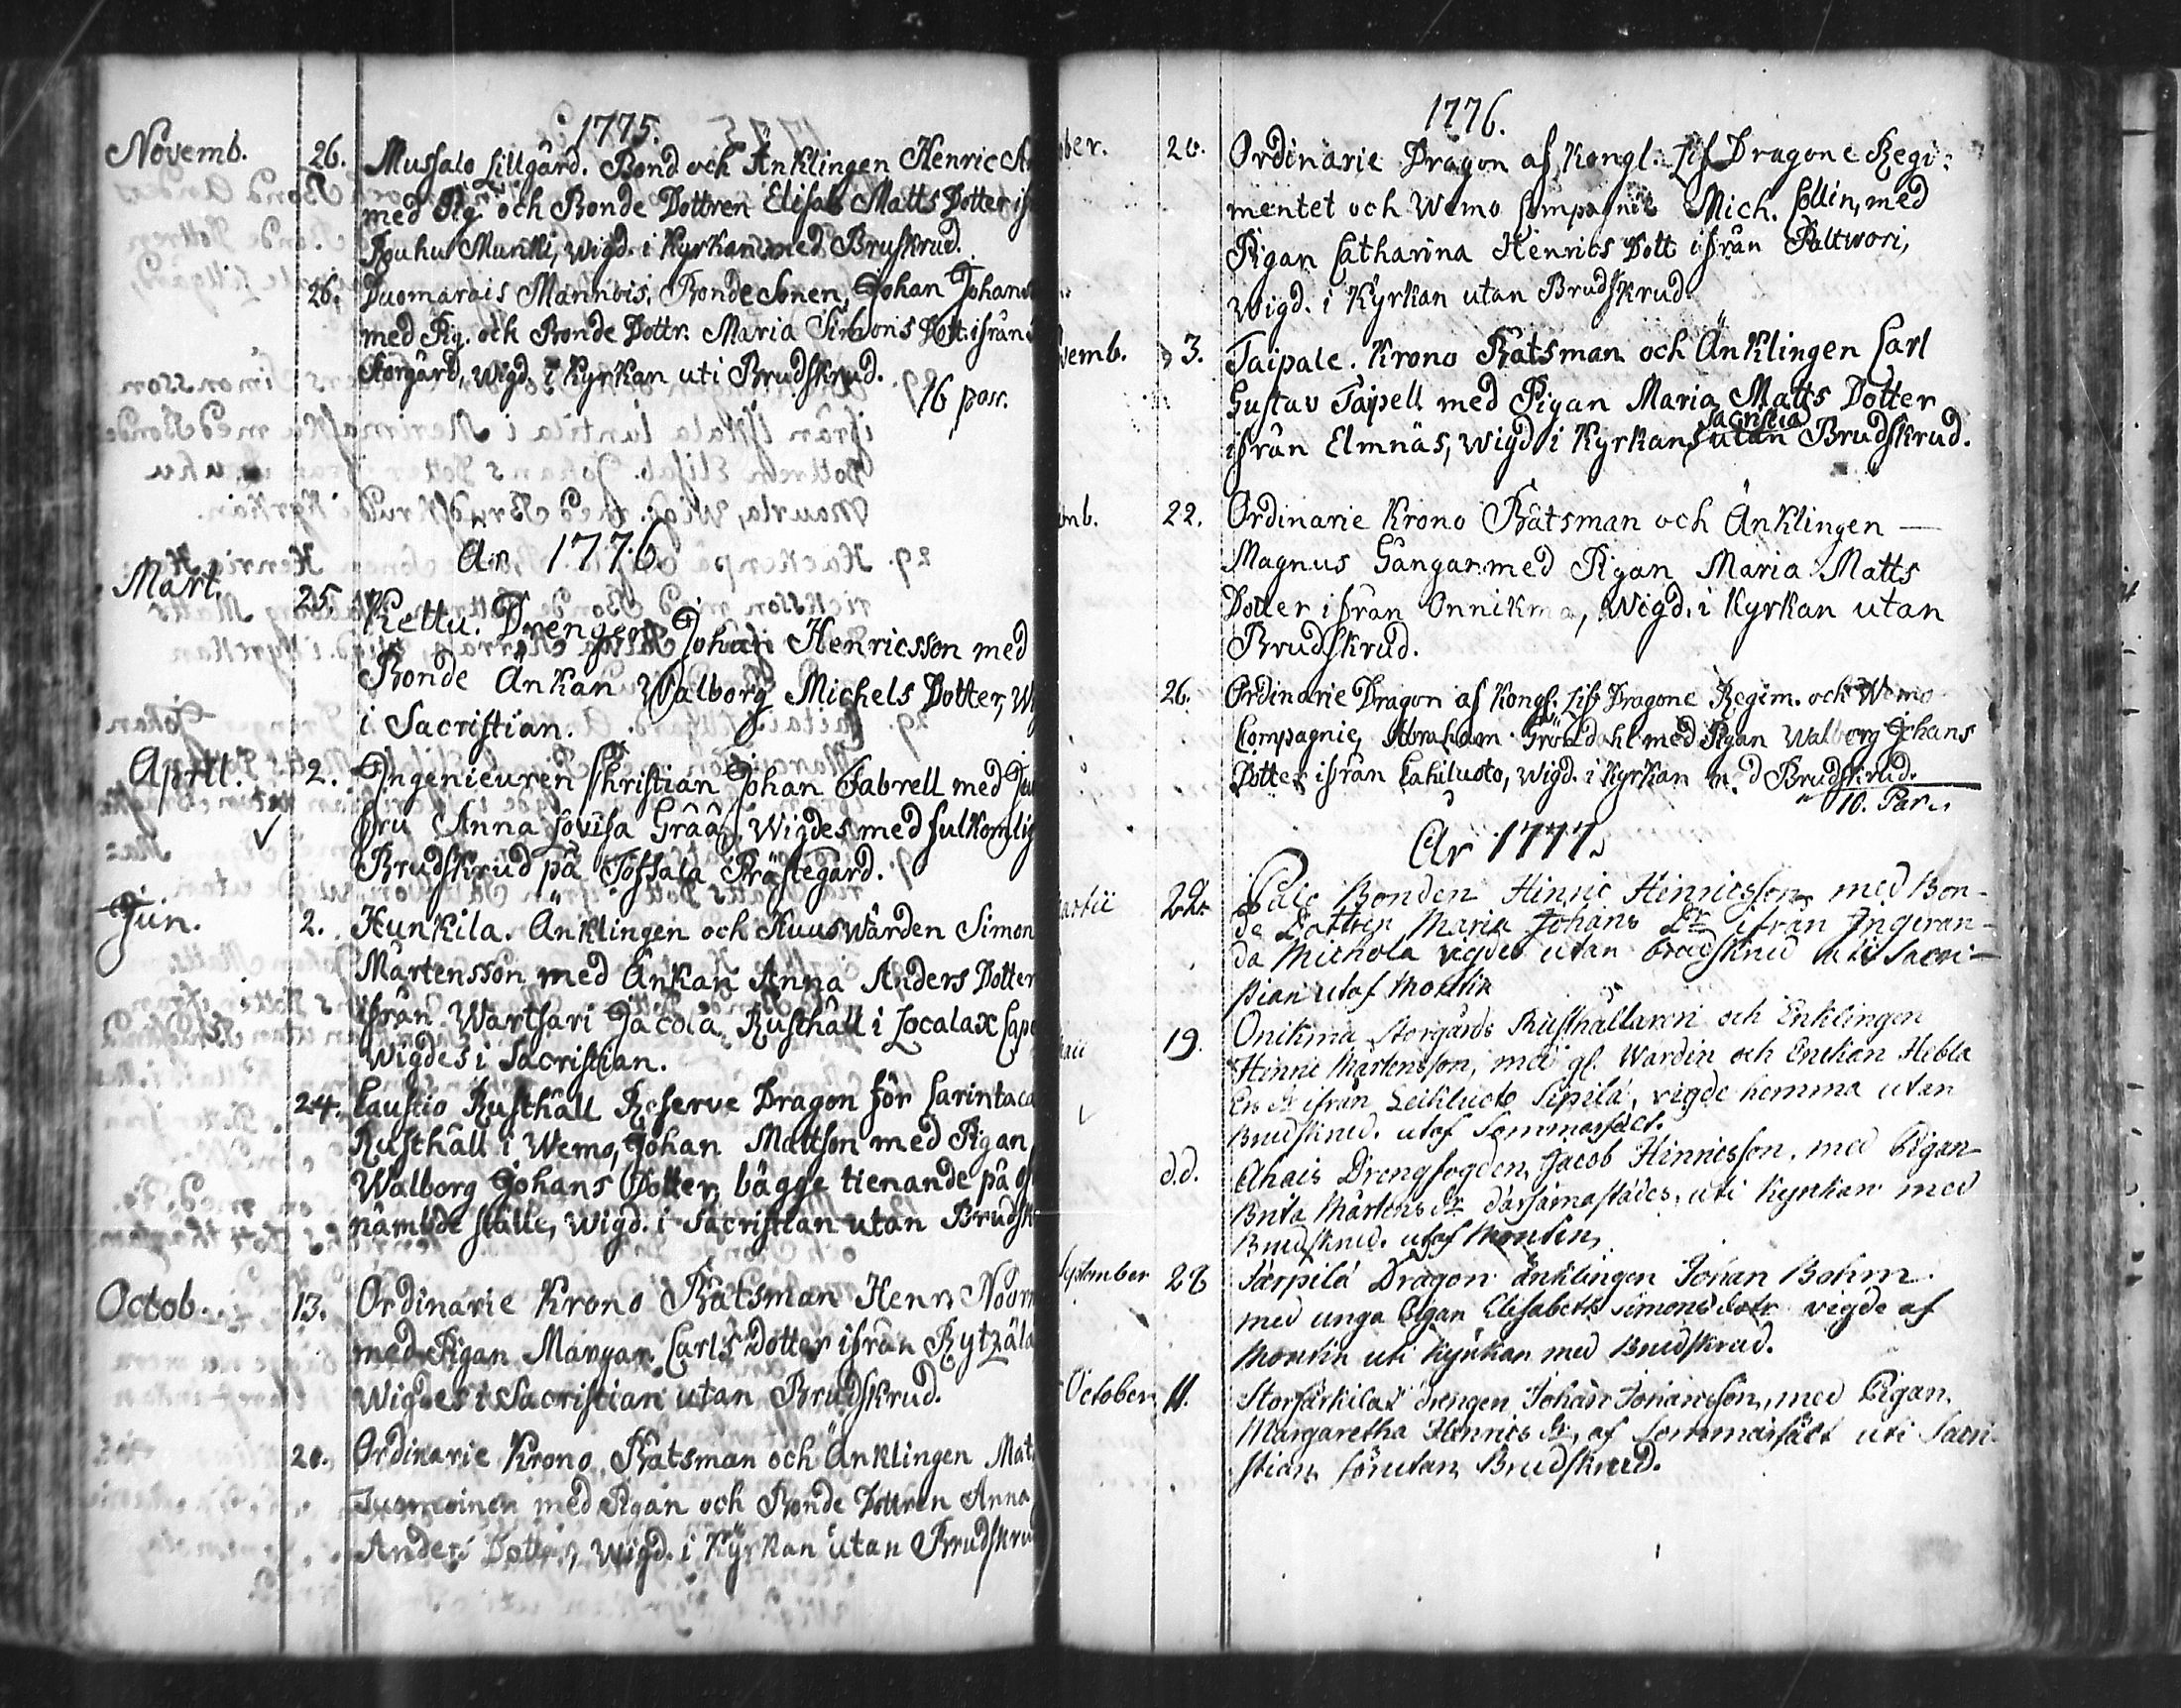 1775.
Novemb. 26. Mussalo Lillgård. Bond och Änklingen Henric
med Pig. och Bonde Dottren Elisab. Matts Dotter
Rouhu Munki, wigd. i Kyrkan med Bruskrud.
26. Duomarais Mannois. Bonde Sonen, Johan
med Pig. och Bonde Dottr. Maria Simons Dott. ifrån
Storgård, wigd. i Kyrkan uti Brudskrud.
16 par.
År 1776.
Mart. 25. Kettu. Drengen Johan Henricsson med
Bonde Änkan Walborg Michels Dotter,
i Sacristian.
April. 2. Ingenieuren Christian Johan Fabrell med
fru Anna Lovisa Gråå, Wigdes med fulkomlig
Brudskrud på Töfsala Prästegård.
Jun. 2. Kunkila. Änklingen och Huuswärden Simon
Mårtensson med Änkan Anna Anders Dotter
ifrån Wartsari Jacola Rusthåll i Localax
Wigdes i Sacristian.
24. Caustio Rusthåll Reserve Dragon för
Rusthåll i Wemo, Johan Mattson med Pigan
Walborg Johans Dotter, bägge tienande på
nämbde ställe, wigd. i Sacristian utan
Octob. 13. Ordinarie Krono Båtsman Henr.
med Pigan Margar. Carls Dotter ifrån
Wigdes i Sacristian utan Brudskrud.
20. Ordinarie Krono Båtsman och Änklingen
med Pigan och Bonde Dottren Anna
Anders Dotter, wigd. i Kyrkan utan
1776.
20. Ordinarie Dragon af Kongl. Lif Dragone Regi-
mentet och Wemo Compagnie Mich. Collin, med
Pigan Catharina Henrics Dott. ifrån Paltwori,
Wigd. i Kyrkan utan Brudskrud.
3. Taipale. Krono Båtsman och Änklingen Carl
Gustav Taipell med Pigan Maria Matts Dotter
sacristia
ifrån Elmnäs, Wigd. i Kyrkans utan Brudskrud.
22. Ordinarie Krono Båtsman och Änklingen —
Magnus Gångar med Pigan Maria Matts
Dotter ifrån Onnikma, Wigd. i Kyrkan utan
Brudskrud.
26. Ordinarie Dragon af Kongl. Lif Dragone Regim. och Wemo
Compagnie, Abraham Gröndahl med Pigan Walborg Johans
Dotter ifrån Lahiluoto, Wigd. i Kyrkan med Brudskrud.
10. Par.
År 1777.
22. Bonden Hinric Hinricsson med Bon-
de Dottren Maria Johans Dr ifrån Ingeran-
da Michola vigdes utan brudskrud uti Sacri-
stian utaf Montin
19. Onikma Storgårds Rusthållaren och Enklingen
Hinric Mårtensson, med gl. Wärdin och Enkan Hebla
ifrån Leikluoto Sipilä, vigde hemma utan
Brudskrud. utaf Sommarfält.
d.d. Ahais Drengfogden Jacob Hinricsson, med Pigan
Brita Mårtens Dr därsammastädes, uti Kyrkan med
Brudskrud. utaf Montin,
September 28 Särpilä Dragon änklingen Johan Bohm
med unga Pigan Elisabeth Simons dotr vigde af
Montin uti Kyrkan med Brudskrud.
October 11. Storsärkilax drengen Johan Johansson, med Pigan
Margaretha Henrics Dr, af Sommarfält uti Sacri-
stian förutan Brudskrud.